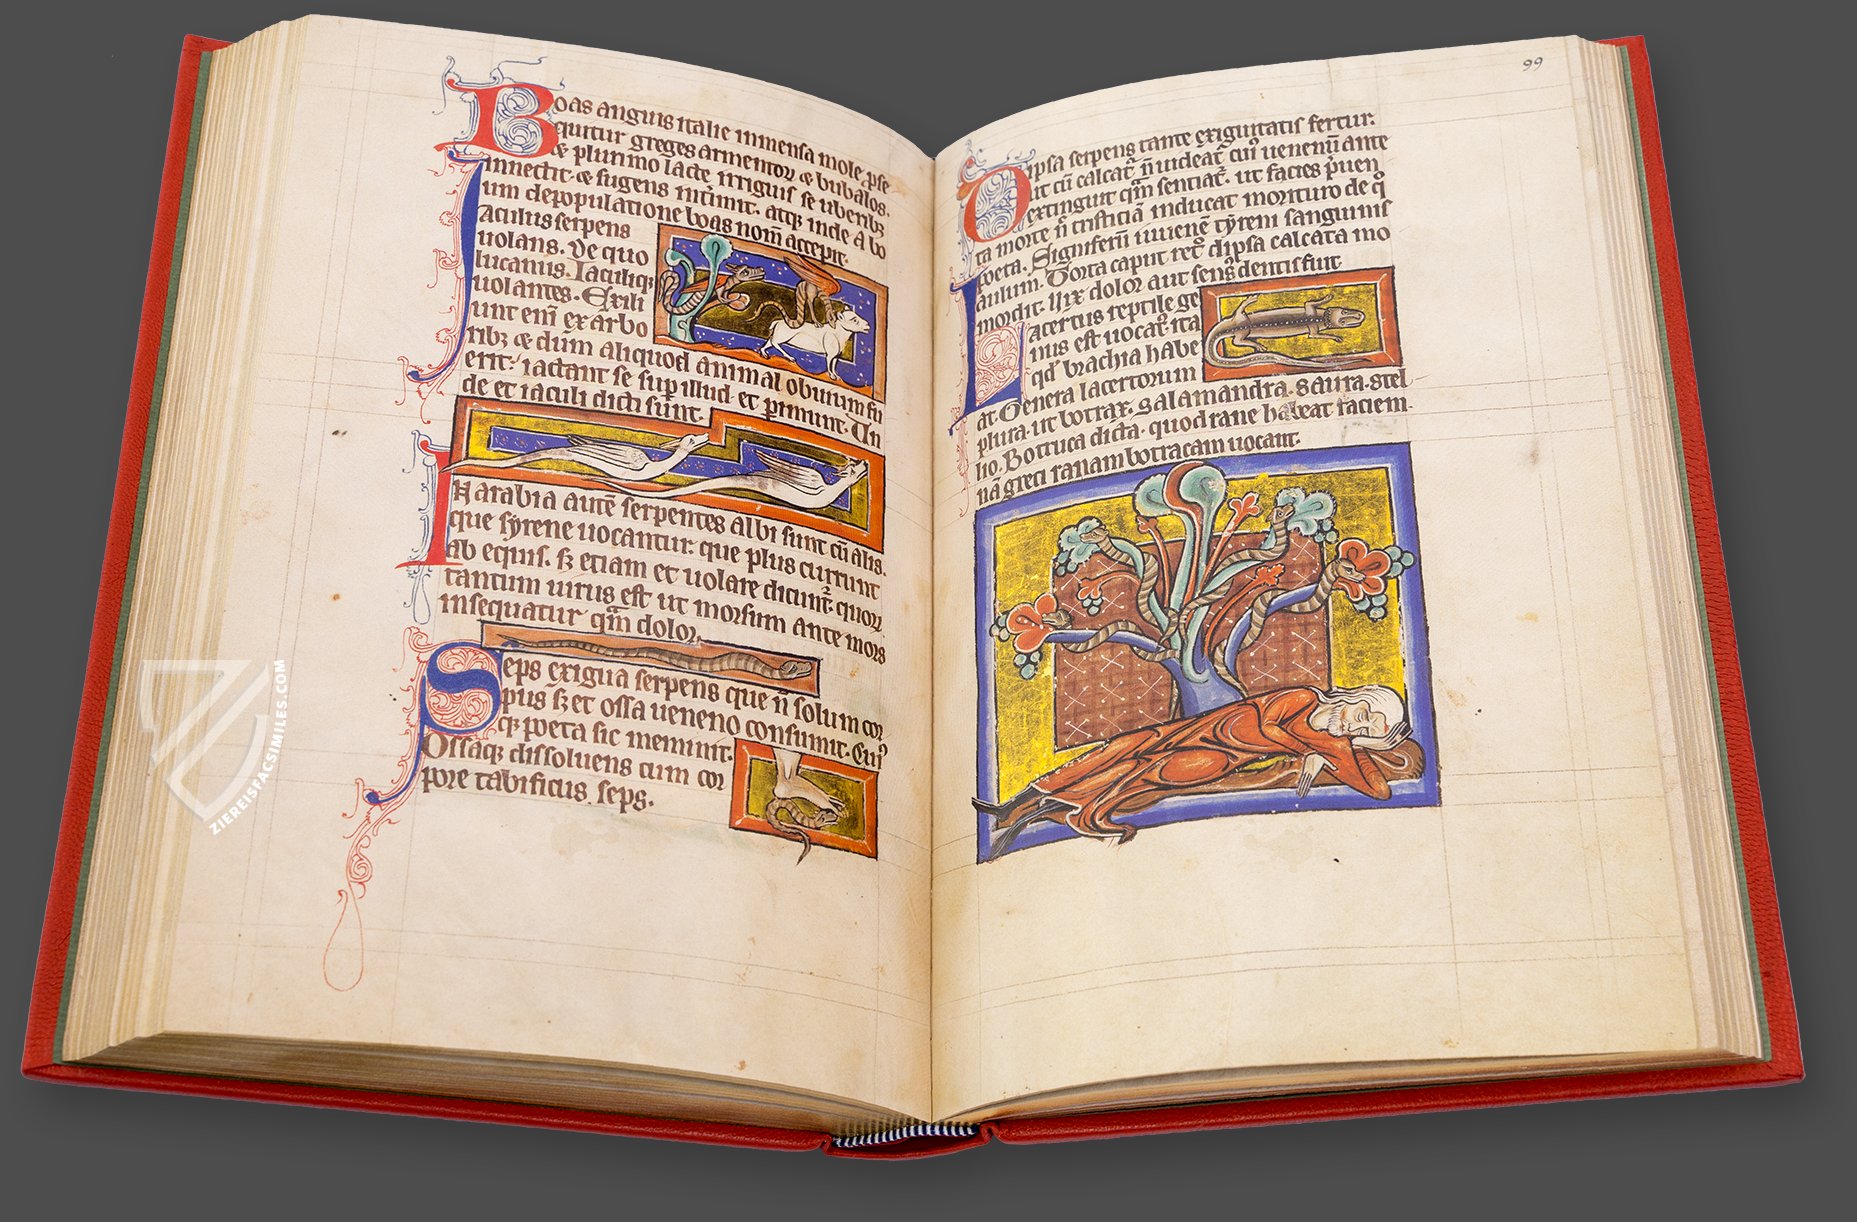 Boas anguis italie inmensa mole ꝑse
quitur greges armentoꝝ ⁊ bubalos.
⁊ plurimo lacte irriguis se uberibꝫ
innectit ⁊ sugens intimit. atqꝫ inde a bo
um depopulatione boas nom̄ accepit.
Iaculus serpens
uolans. De quo
lucanus. Iaculiqꝫ
uolantes. Exili
unt eni᷑ ex arbo
ribꝫ ⁊ dum aliquod animal obuium fu
erit: iactant se suꝑ illud et ꝑimunt. Un
de et iaculi dicti sunt.
IN arabia aute᷑ serpentes albi sunt cu᷑ alis.
que syrene uocantur. que plus currunt
ab equis. sꝫ etiam et uolare dicunt᷑ quoꝝ
tantum uirus est ut morsum ante mors
insequatur qᷓm dolor.
Seps exigua serpens que n᷑ solum cor
pus sꝫ et ossa ueneno consumit. Cui᷒
qꝫ poeta sic meminit.
Ossaqꝫ dissoluens cum cor
pore tabificus seps.
99
Dipsa serpens tante exiguitatis fertur.
ut cu᷑ calcat᷑ n᷑ uideat᷑ cui᷒ uenenu᷑ ante
extinguit qᷓm sentiat᷑. ut facies p᷑uen
ta morte n᷑ tristicia᷑ inducat morituro de qͦ
poeta. Signiferu᷑ iuuene᷑ tyreni sanguinis
aulum. Torta caput ret᷑ͦ dipsa calcata mo
mordit. Uix dolor aut sens᷒ dentis fuit
Lacertus reptile ge
nus est uocat᷑ ita
qd᷑ brachia habe
at. Genera lacertorum
plura. ut botrax. salamandra. saura. stel
lio. Bottuca dicta. quod rane habeat faciem.
na᷑ greci ranam botracam uocant.
ZIEREISFACSIMILES.COM